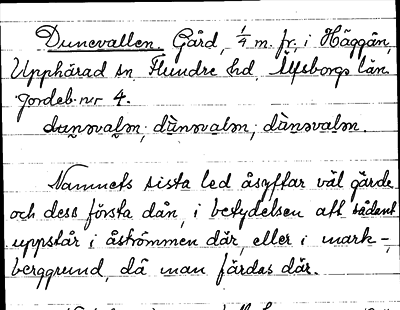 Dunevallen. Gård, 1/4 m. fr. i Häggån,
Upphärad sn, Flundre hd, Älfsborgs län.
Jordeb. nr 4.
dunəvalən; dùnəvalən; dànəvalən.
Namnets sista led åsyftar väl gärde
och dess första dån, i betydelsen att sådant
uppstår i åströmmen där, eller i mark-,
berggrund, då man färdas där.